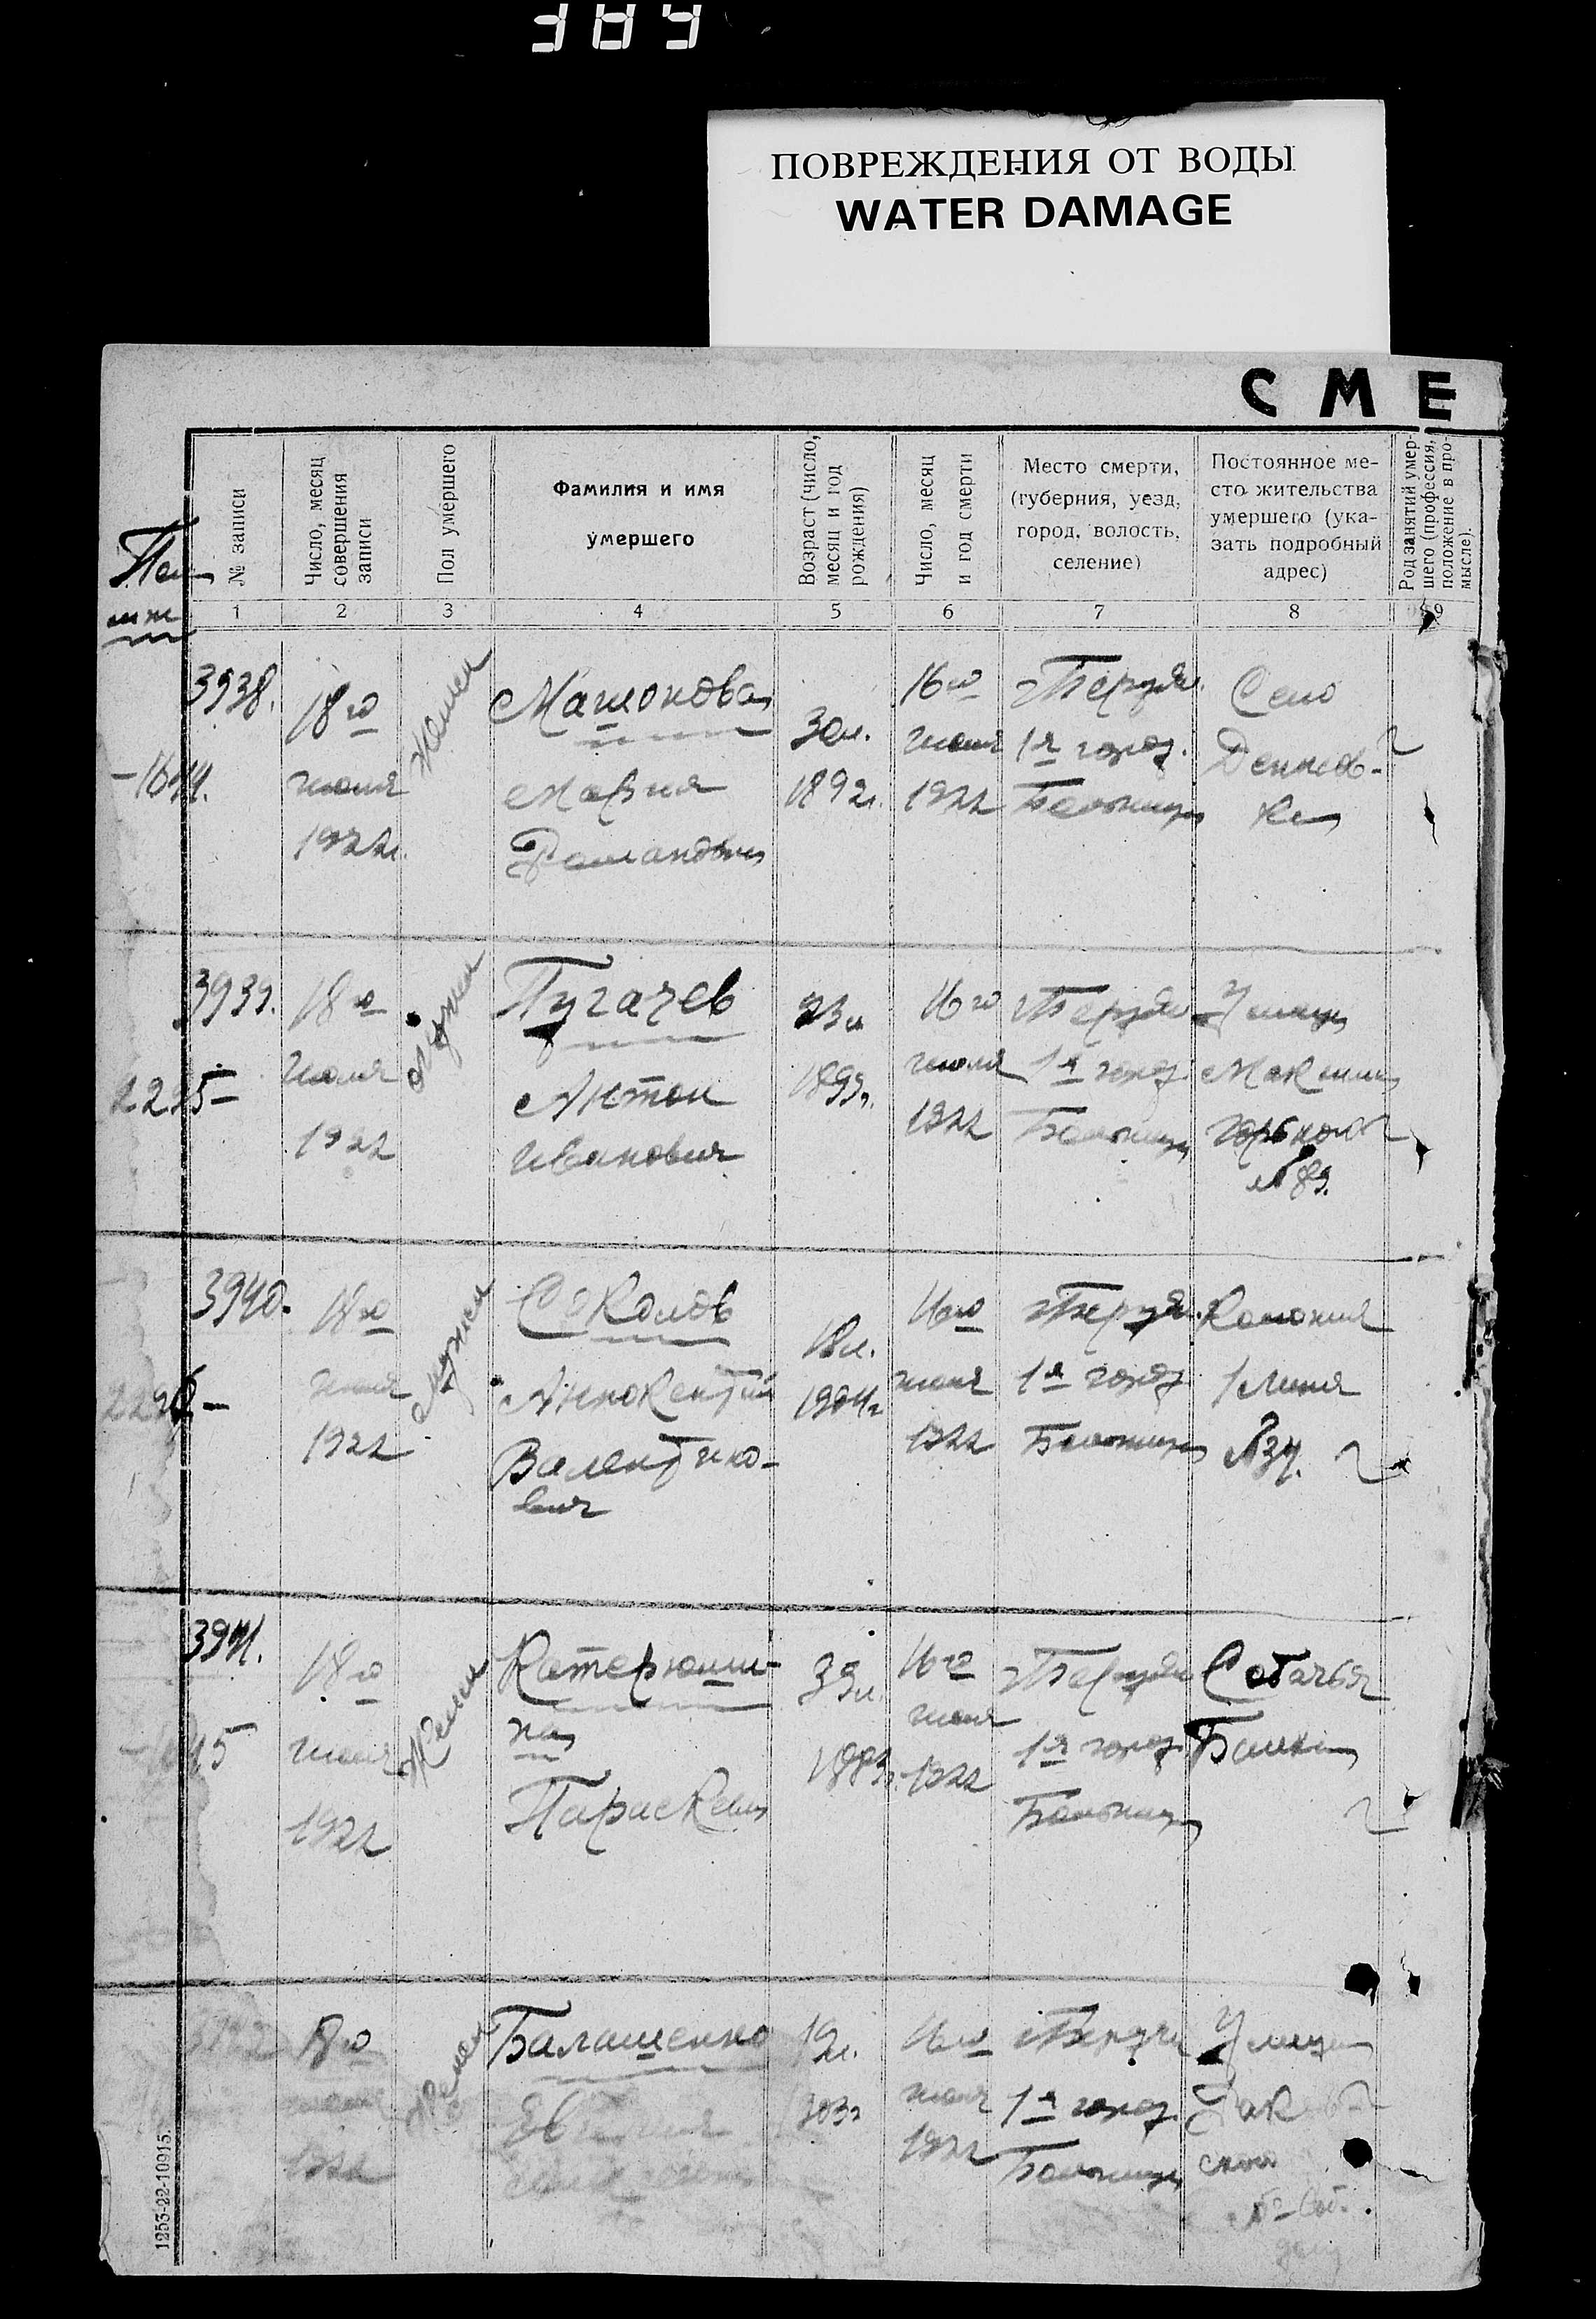 389
ПОВРЕЖДЕНИЯ ОТ ВОДЫ
WATER DAMAGE
С М Е
№ записи
Число, месяц
совершения
записи
Пол умершего
Фамилия и имя
умершего
Возраст (число,
месяц и год
рождения)
Число, месяц
и год смерти
Место смерти,
(губерния, уезд,
город, волость,
селение)
Постоянное ме-
сто жительства
умершего (ука-
зать подробный
адрес)
Род занятий умер-
шего (профессия,
положение в про-
мысле).
1 2 3 4 5 6 7 8 9
3938.
18го
июля
1922г.
Женск
Машонова
Мария
Романовна
30л.
1892г.
16го
июля
1922
1я город.
Больница
Село
3939.
2295-
18го
июля
1922
Мужск
Пугачев
Антон
Иванович
23л
1899г.
16го
июля
1922
1я город.
Больница
Улица
Максима
Горького
№ 89.
3940.
18го
июля
1922
Мужск
Соколов
Инокентий
Валентино-
вич
18л.
1904г
16го
июля
1922
1я город
Больница
Колония
1 Линия
№34.
3941.
18го
июля
1922
Женск
Катерюши-
на
Параскева
39л.
1883г.
16го
июля
1922
1я город.
Больница
Собачья
Балка
3942
18го
июля
1922
Женск
Балашенко
19л.
1903г
16го
июля
1922
1я город.
Больница
Улица
ская
1253-22-10915.